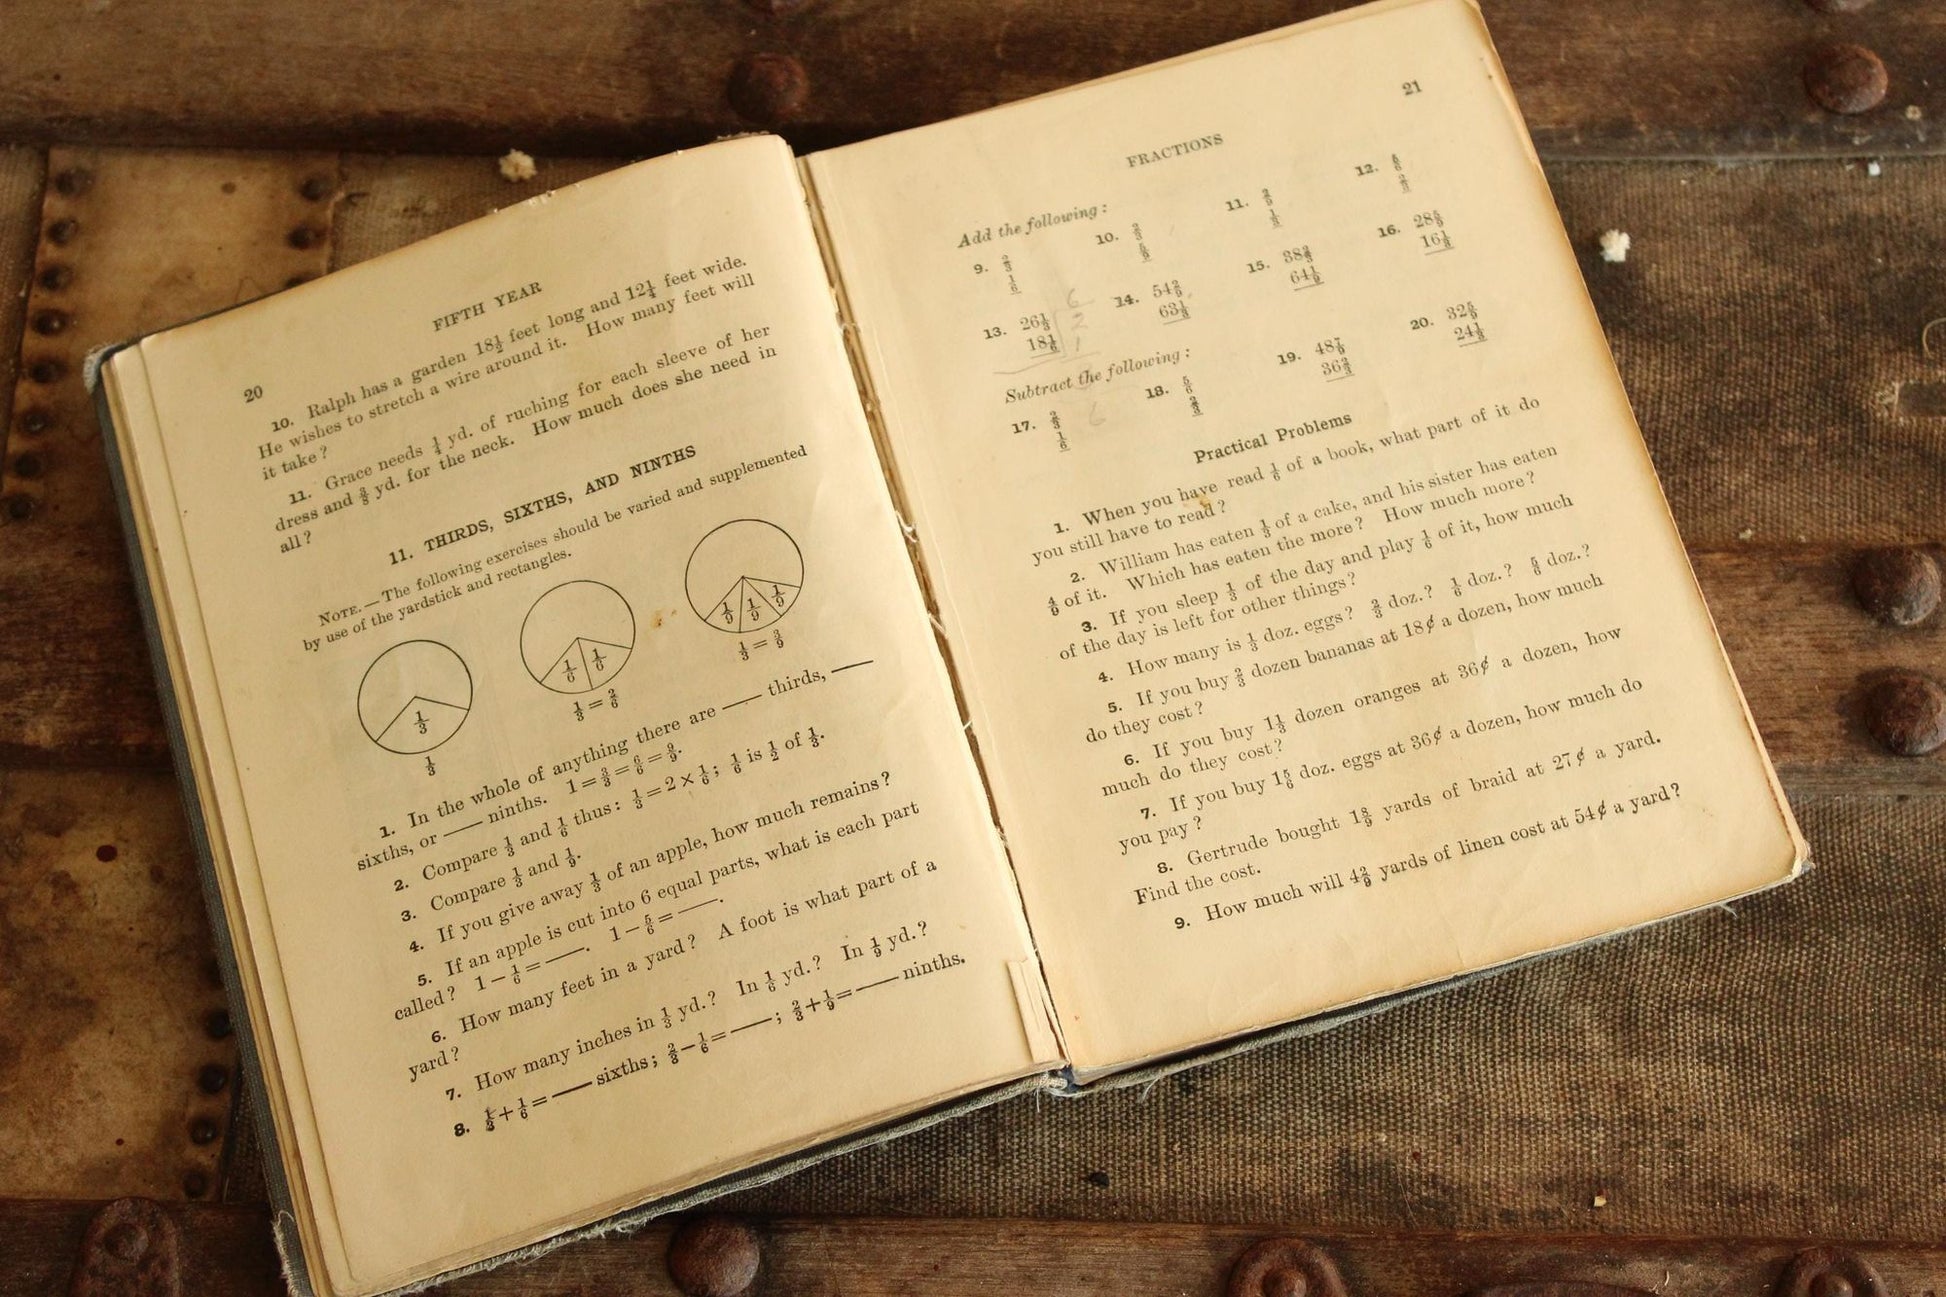 20
FIFTH YEAR
10. Ralph has a garden 18½ feet long and 12¼ feet wide.
He wishes to stretch a wire around it. How many feet will
it take?
11. Grace needs ¼ yd. of ruching for each sleeve of her
dress and ⅜ yd. for the neck. How much does she need in
all?
11. THIRDS, SIXTHS, AND NINTHS
NOTE.—The following exercises should be varied and supplemented
by use of the yardstick and rectangles.
1/3
1/6 1/6
1/9 1/9 1/9
1/3
1/3 = 2/6
1/3 = 3/9
1. In the whole of anything there are — thirds, —
sixths, or — ninths. 1 = 3/3 = 6/6 = 9/9.
2. Compare 1/3 and 1/6 thus: 1/3 = 2 × 1/6; 1/6 is 1/2 of 1/3.
3. Compare 1/3 and 1/9.
4. If you give away 1/3 of an apple, how much remains?
5. If an apple is cut into 6 equal parts, what is each part
called? 1 − 1/6 = —. 1 − 5/6 = —.
6. How many feet in a yard? A foot is what part of a
yard?
7. How many inches in 1/3 yd.? In 1/6 yd.? In 1/9 yd.?
8. 1/3 + 1/6 = — sixths; 2/3 − 1/6 = —; 2/3 + 1/9 = — ninths.
21
FRACTIONS
Add the following:
9. 10. 11. 12.
13. 26⅓ 14. 15. 16.
18⅙
Subtract the following:
17. 18. 19. 20.
Practical Problems
1. When you have read 1/6 of a book, what part of it do
you still have to read?
2. William has eaten 1/3 of a cake, and his sister has eaten
4/9 of it. Which has eaten the more? How much more?
3. If you sleep 1/3 of the day and play 1/6 of it, how much
of the day is left for other things?
4. How many is 1/3 doz. eggs? 2/3 doz.? 1/6 doz.? 5/6 doz.?
5. If you buy 2/3 dozen bananas at 18¢ a dozen, how much
do they cost?
6. If you buy 1⅓ dozen oranges at 36¢ a dozen, how
much do they cost?
7. If you buy 1⅚ doz. eggs at 36¢ a dozen, how much do
you pay?
8. Gertrude bought 1 8/9 yards of braid at 27¢ a yard.
Find the cost.
9. How much will 4 2/9 yards of linen cost at 54¢ a yard?